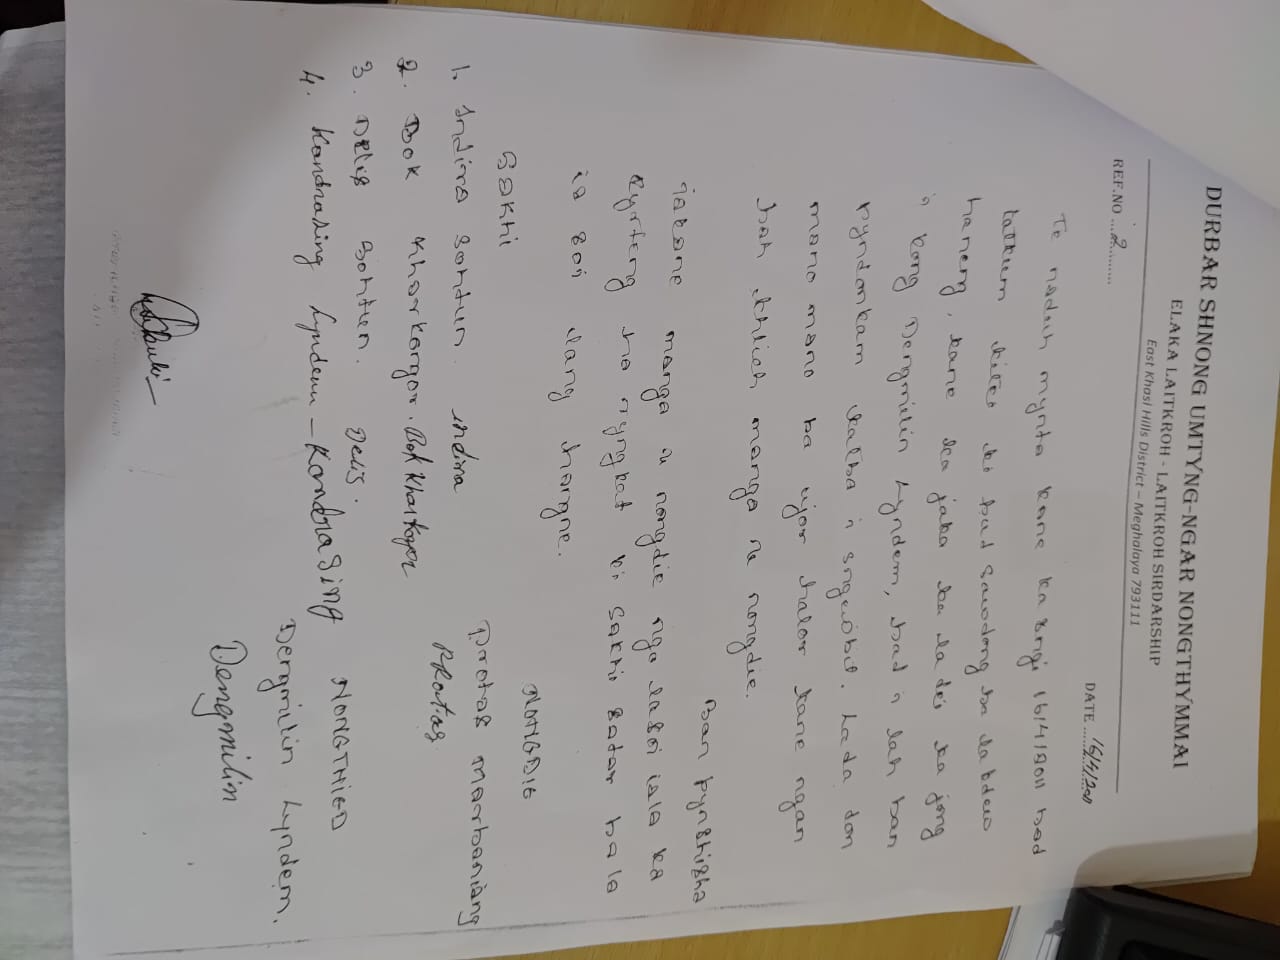 DURBAR SHNONG UMTYNG-NGAR NONGTHYMMAI
ELAKA LAITKROH - LAITKROH SIRDARSHIP
East Khasi Hills District – Meghalaya 793111
REF.NO ...2.........
DATE ...15/4/2011
Te naduh mynta kane ka sngi 16/4/2011 bad
katkum kitei ki bud sawdong ba la batai
haneng, kane ka jaka ka la dei ka jong
i kong Dengmilin Lyndem, bad i lah ban
pyndonkam kalba i sngewbit. Lada don
mano mano ba ujor halor kane ngan
bah khlieh manga u nongdie.
Ban pynshisha
iakane manga u nongdie nga lasoi iala ka
kyrteng ha nyngkat ki sakhi batar ba la
ia soi lang hangne.
Sakhi
1. Indira Sohtun. indira
2. Bok Kharkongor. Bok Kharkongor
3. Delis Sohtun. Delis.
4. Kondrasing Lyndem – Kondrasing
NONGDIE
Protas Marbaniang
PRotas
NONGTHIED
Dengmilin Lyndem.
Dengmilin